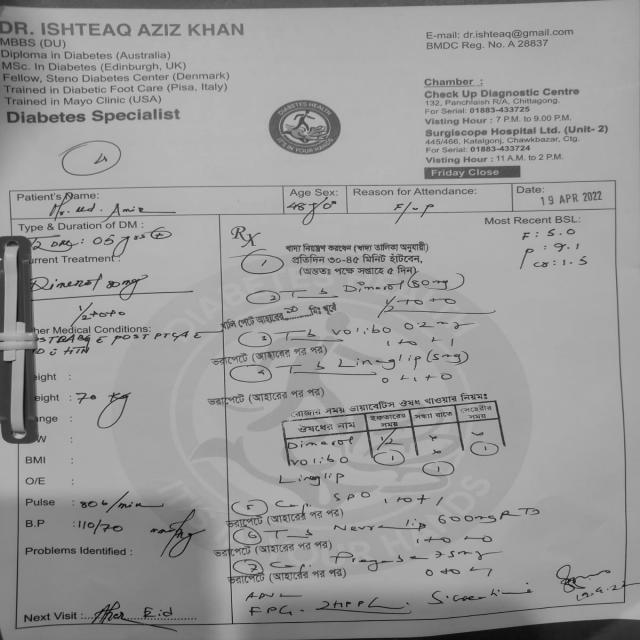 DR. ISHTEAQ AZIZ KHAN
MBBS (DU)
Diploma in Diabetes (Australia)
MSc. In Diabetes (Edinburgh, UK)
Fellow, Steno Diabetes Center (Denmark)
Trained in Diabetic Foot Care (Pisa, Italy)
Trained in Mayo Clinic (USA)
Diabetes Specialist
DIABETES HEALTH
IT'S IN YOUR HANDS
E-mail: dr.ishteaq@gmail.com
BMDC Reg. No. A 28837
Chamber :
Check Up Diagnostic Centre
132, Panchlaish R/A, Chittagong.
For Serial: 01883-433725
Visting Hour : 7 P.M. to 9.00 P.M.
Surgiscope Hospital Ltd. (Unit- 2)
445/466, Katalgonj, Chawkbazar, Ctg.
For Serial: 01883-433724
Visting Hour : 11 A.M. to 2 P.M.
Friday Close
Patient's Name:
Age Sex:
48
Reason for Attendance:
F/up
Date:
19 APR 2022
Type & Duration of DM :
urrent Treatment :
Dimerol 80mg
1/2+0+0
her Medical Conditions:
POST PTCA
HTN
eight :
eight : 70 kg
ange :
W :
BMI :
O/E :
Pulse : 80b/min
B.P : 110/70
Problems Identified :
Next Visit : After Eid
Most Recent BSL:
F: 5.0
P: 9.1
cr: 1.5
Rx
1 খাদ্য নিয়ন্ত্রণ করবেন (খাদ্য তালিকা অনুযায়ী)
প্রতিদিন ৩০-৪৫ মিনিট হাঁটবেন,
(অন্ততঃ পক্ষে সপ্তাহে ৫ দিন)
2 Dimerol (80mg)
1/2+0+0
খালি পেটে আহারের 30 মিঃ পূর্বে
3 Volibo 0.2mg
1+0+1
ভরাপেটে (আহারের পর পর)
4 Linaglip (5mg)
0+1+0
ভরাপেটে (আহারের পর পর)
রোজার সময় ডায়াবেটিস ঔষধ খাওয়ার নিয়ম:
ঔষধের নাম ইফতারের সময় সন্ধ্যা রাতে সেহেরীর সময়
Dimerol 1/2
Volibo 1 1
Linaglip 1
5 Cap. SPO 1+0+1
ভরাপেটে (আহারের পর পর)
6 600mg
1+0+0
ভরাপেটে (আহারের পর পর)
7 Cap. 75mg
0+0+1
ভরাপেটে (আহারের পর পর)